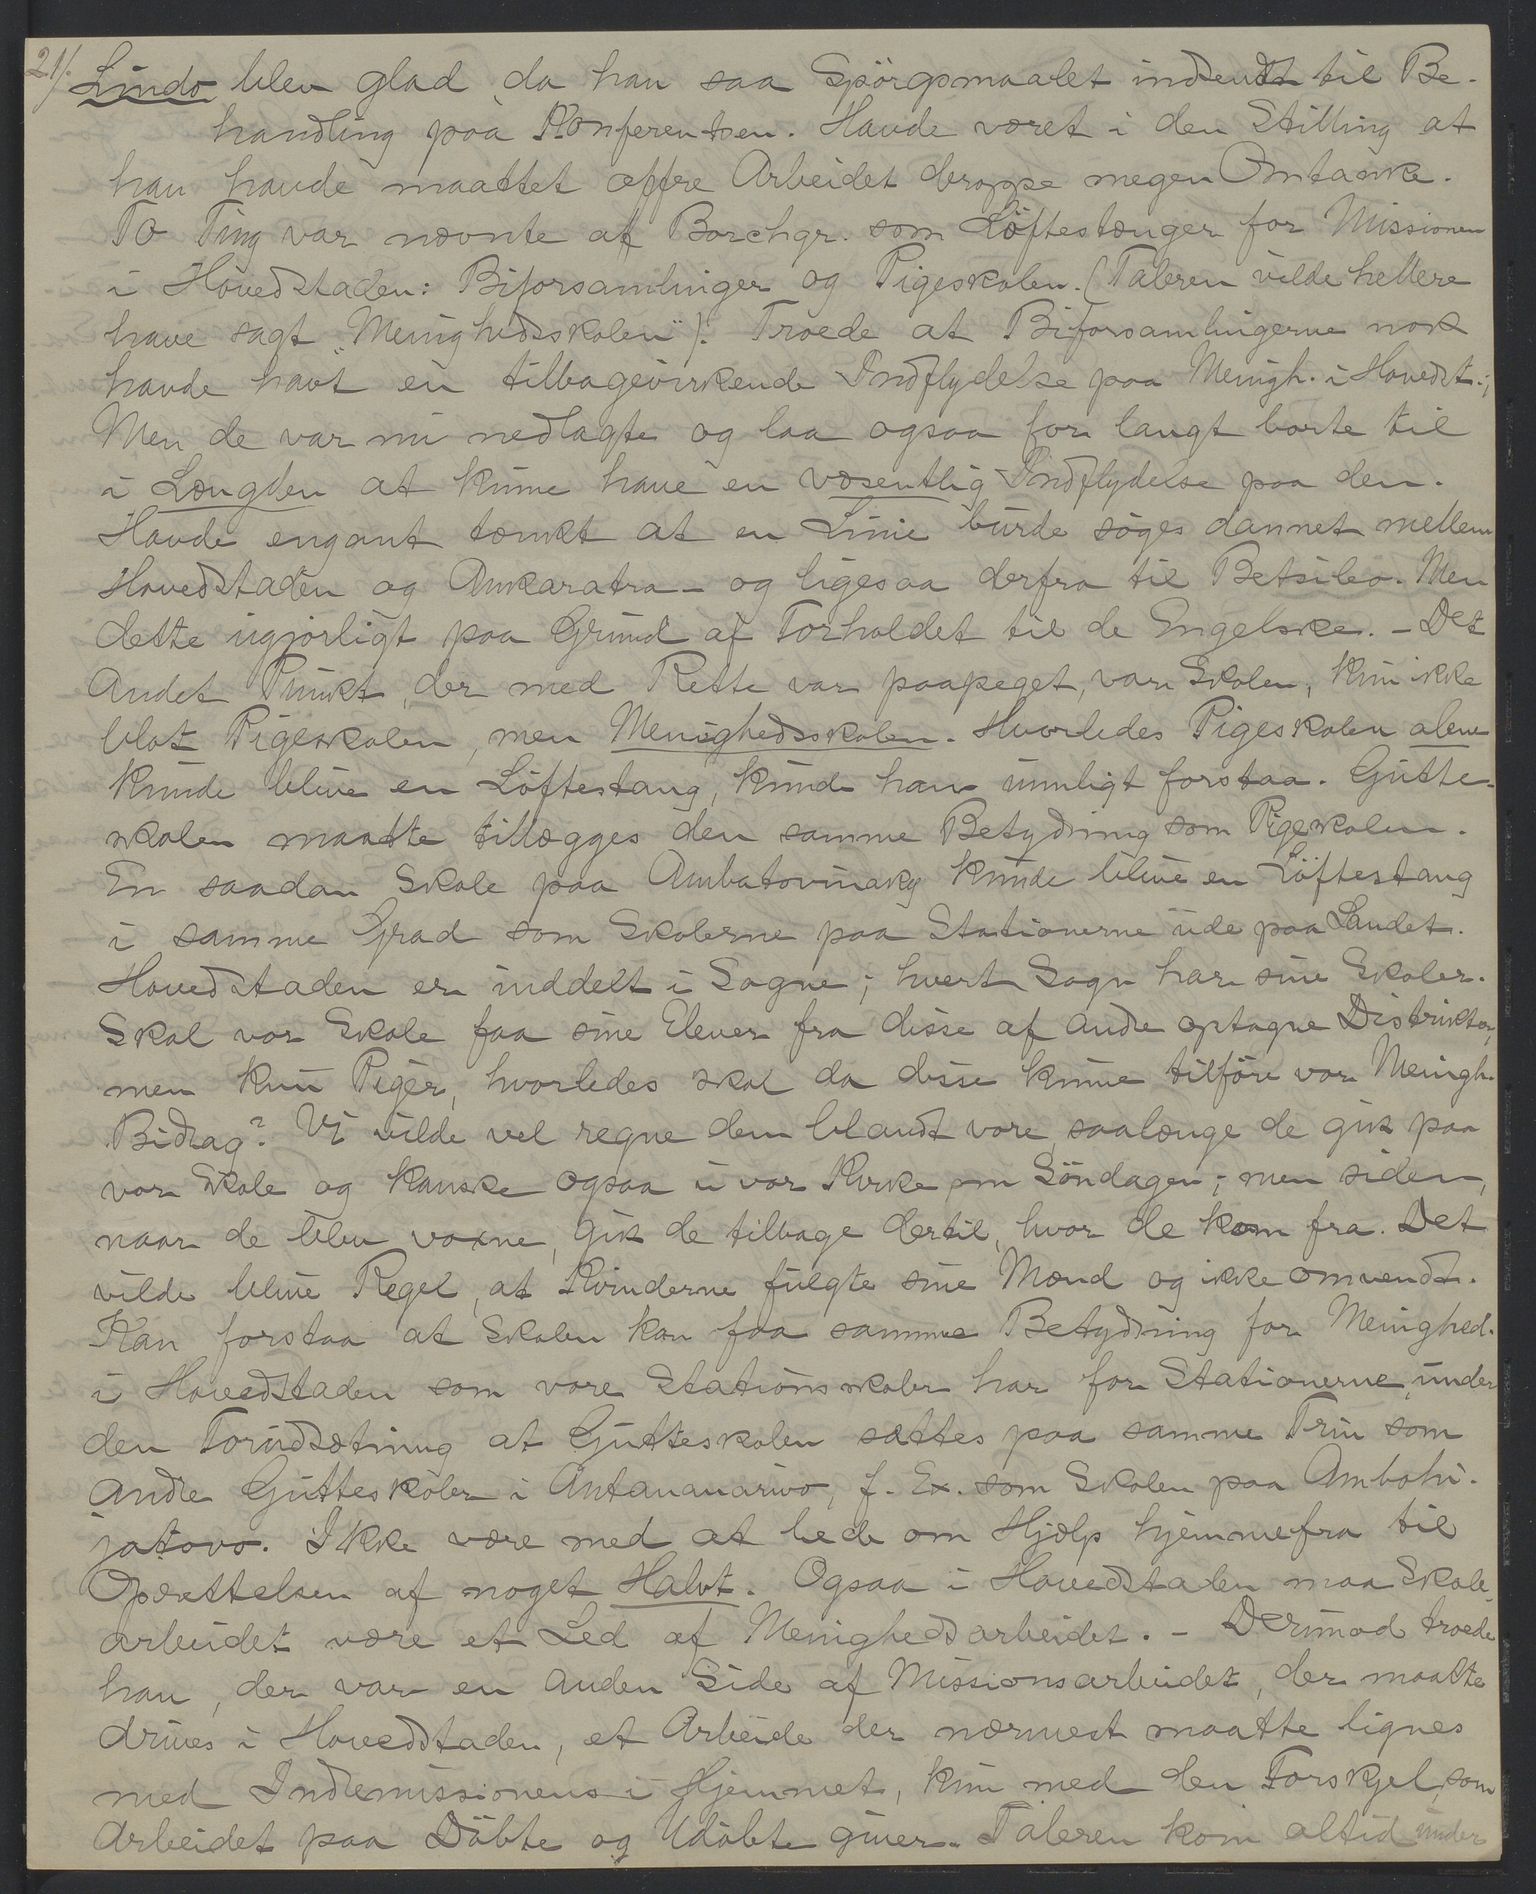 21/. Lindo blev glad, da han saa Spörgsmaalet indsendt til Be-
handling paa Konferentsen. Havde været i den Stilling at
han havde maattet offre Arbeidet deroppe megen Omtanke.
To Ting var nævnte af Borchgr. som Löftestænger for Missionen
i Hovedstaden: Biforsamlinger og Pigeskolen. (Taleren vilde hellere
have sagt "Menighedsskolen"). Troede at Biforsamlingerne nok
havde havt en tilbagevirkende Indflydelse paa Menigh. i Hovedst.;
Men de var nu nedlagte og laa ogsaa for langt borte til
i Længden at kunne have en væsentlig Indflydelse paa den.
Havde engang tænkt at en Linie burde söges dannet mellem
Hovedstaden og Ankaratra - og ligesaa derfra til Betsileo. Men
dette ugjörligt paa Grund af Forholdet til de Engelske. - Det
Andet Punkt, der med Rette var paapeget, var Skolen, kun ikke
blot Pigeskolen, men Menighedsskolen. Hvorledes Pigeskolen alene
kunde blive en Löftestang, kunde han umuligt forstaa. Gutte-
skolen maatte tillægges den samme Betydning som Pigeskolen.
En saadan Skole paa Ambatovinaky kunde blive en Löftestang
i samme Grad som Skolerne paa Stationerne ude paa Landet.
Hovedstaden er inddelt i Sogne; hvert Sogn har sine Skoler.
Skal vor Skole faa sine Elever fra disse af andre optagne Distrikter,
men kun Piger, hvorledes skal da disse kunne tilföre vor Menigh.
Bidrag? Vi vilde vel regne dem blandt vore, saalænge de gik paa
vor Skole og kanske ogsaa i vor Kirke om Söndagen; men siden,
naar de blev voxne, gik de tilbage dertil, hvor de kom fra. Det
vilde blive Regel, at Kvinderne fulgte sine Mænd og ikke omvendt.
Kan forstaa at Skolen kan faa samme Betydning for Menighed.
i Hovedstaden som vore Stationsskoler har for Stationerne, under
den Forudsætning at Gutteskolen sættes paa samme Trin som
andre Gutteskoler i Antananarivo, f. Ex. som Skolen paa Ambohi-
jatovo. Ikke være med at bede om Hjælp hjemmefra til
Oprettelsen af noget Halvt. Ogsaa i Hovedstaden maa Skole-
arbeidet være et Led af Menighedsarbeidet. - Derimod troede
han, der var en anden Side af Missionsarbeidet, der maatte
drives i Hovedstaden, et Arbeide der nærmest maatte lignes
med Indremissionens i Hjemmet, kun med den Forskjel, som
Arbeidet paa Döbte og Udöbte giver. Taleren kom altid under